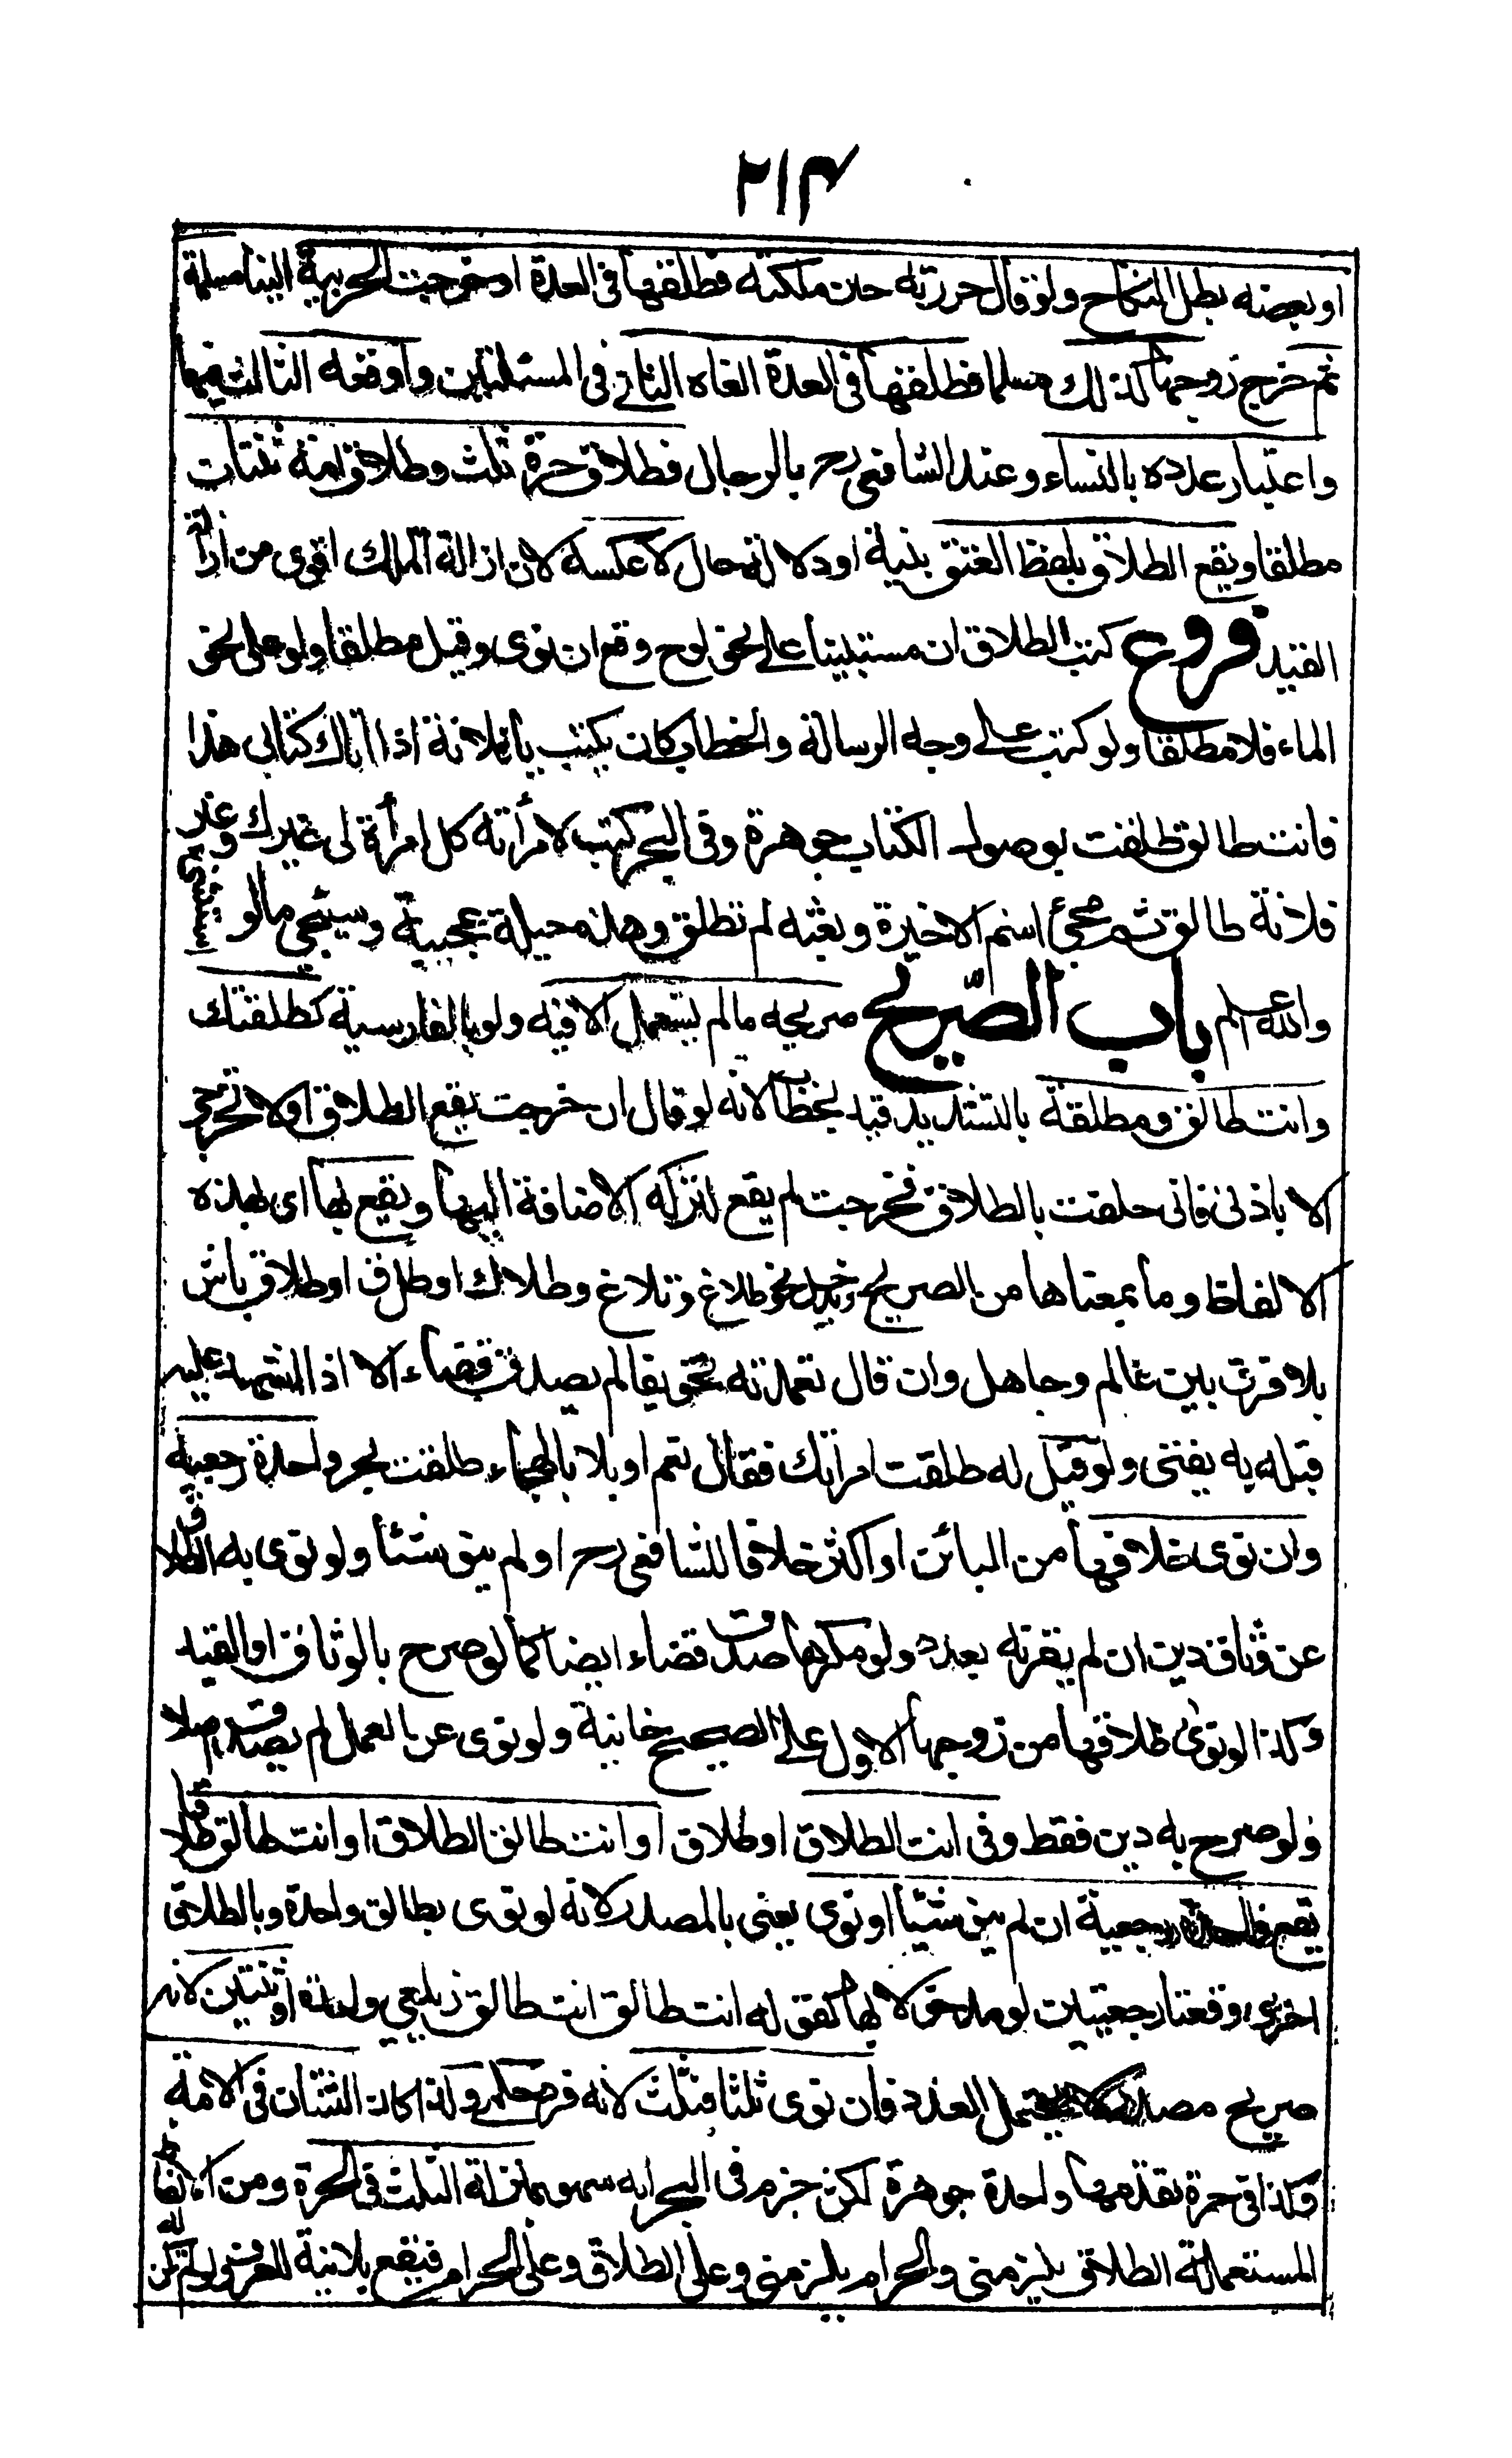 ٢١٣
او بعضه بطل النكاح ولو قال حررته حين ملكته فطلقها في العدة او خرجت الحربية الينا مسلمة
ثم خرج زوجها كذلك مسلما فطلقها في العدة الغاه الثاني في المسئلتين واوقعه الثالث فيهما
واعتبار عدده بالنساء وعند الشافعي رح بالرجال فطلاق حرة ثلث وطلاق امة ثنتان
مطلقا ويقع الطلاق بلفظ العتق بنية او دلالة حال لا عكسه لان ازالة الملك اقوى من ازالة
القيد فروع كتب الطلاق ان مستبينا على نحو لوح وقع ان نوى وقيل مطلقا ولو على نحو
الماء فلا مطلقا ولو كتب على وجه الرسالة والخطاب كان يكتب يا فلانة اذا اتاك كتابي هذا
فانت طالق طلقت بوصول الكتاب جوهرة وفي البحر كتب لامرأته كل امرأة لى غيرك وغير
فلانة طالق ثم محى اسم الاخيرة وبعثه لم تطلق وهذه حيلة عجيبة وسيجئ مالو استثنى
والله اعلم باب الصّريح صريحه مالم يستعمل الا فيه ولو بالفارسية كطلقتك
وانت طالق ومطلقة بالتشديد قيد بخطاب لانه لو قال ان خرجت يقع الطلاق اولا تخرجى
الا باذنى فانى حلفت بالطلاق فخرجت لم يقع لتركه الاضافة اليها ويقع بها اى بهذه
الالفاظ وما بمعناها من الصريح ويدخل نحو طلاغ وتلاغ وطلاك او ط ل ق او طلاق باش
بلا فرق بين عالم وجاهل وان قال تعمدته تخويفا لم يصدق قضاء الا اذا اشهد عليه
قبله به يفتى ولو قيل له طلقت امرأتك فقال نعم او بلا بالهجاء طلقت بحر واحدة رجعية
وان نوى خلافها من البائن او اكثر خلافا للشافعي رح او لم ينو شئا ولو نوى به الطلاق
عن وثاق دين ان لم يقرنه بعدد ولو مكرها صدق قضاء ايضا كما لو صرح بالوثاق او القيد
وكذا لو نوى طلاقها من زوجها الاول على الصحيح خانية ولو نوى عن العمل لم يصدق اصلا
ولو صرح به دين فقط وفى انت الطلاق او طلاق او انت طالق الطلاق او انت طالق طلاقا
يقع واحدة رجعية ان لم ينو شيئا او نوى يعنى بالمصدر لانه لو نوى بطالق واحدة وبالطلاق
اخرى وقعتا رجعيتين لو مدخولا بها كقوله انت طالق انت طالق زيلعي واحدة او ثنتين لانه
صريح مصدر لا يحتمل العدد فان نوى ثلثا فثلث لانه فرد حكمي ولذا كان الثنتان في الامة
وكذا في حرة تقدمها واحدة جوهرة لكن جزم في البحر انه سهو بمنزلة الثلث في الحرة ومن الالفاظ
المستعملة الطلاق يلزمنى والحرام يلزمنى وعلى الطلاق وعلى الحرام فيقع بلا نية للعرف ولو لم تكن له